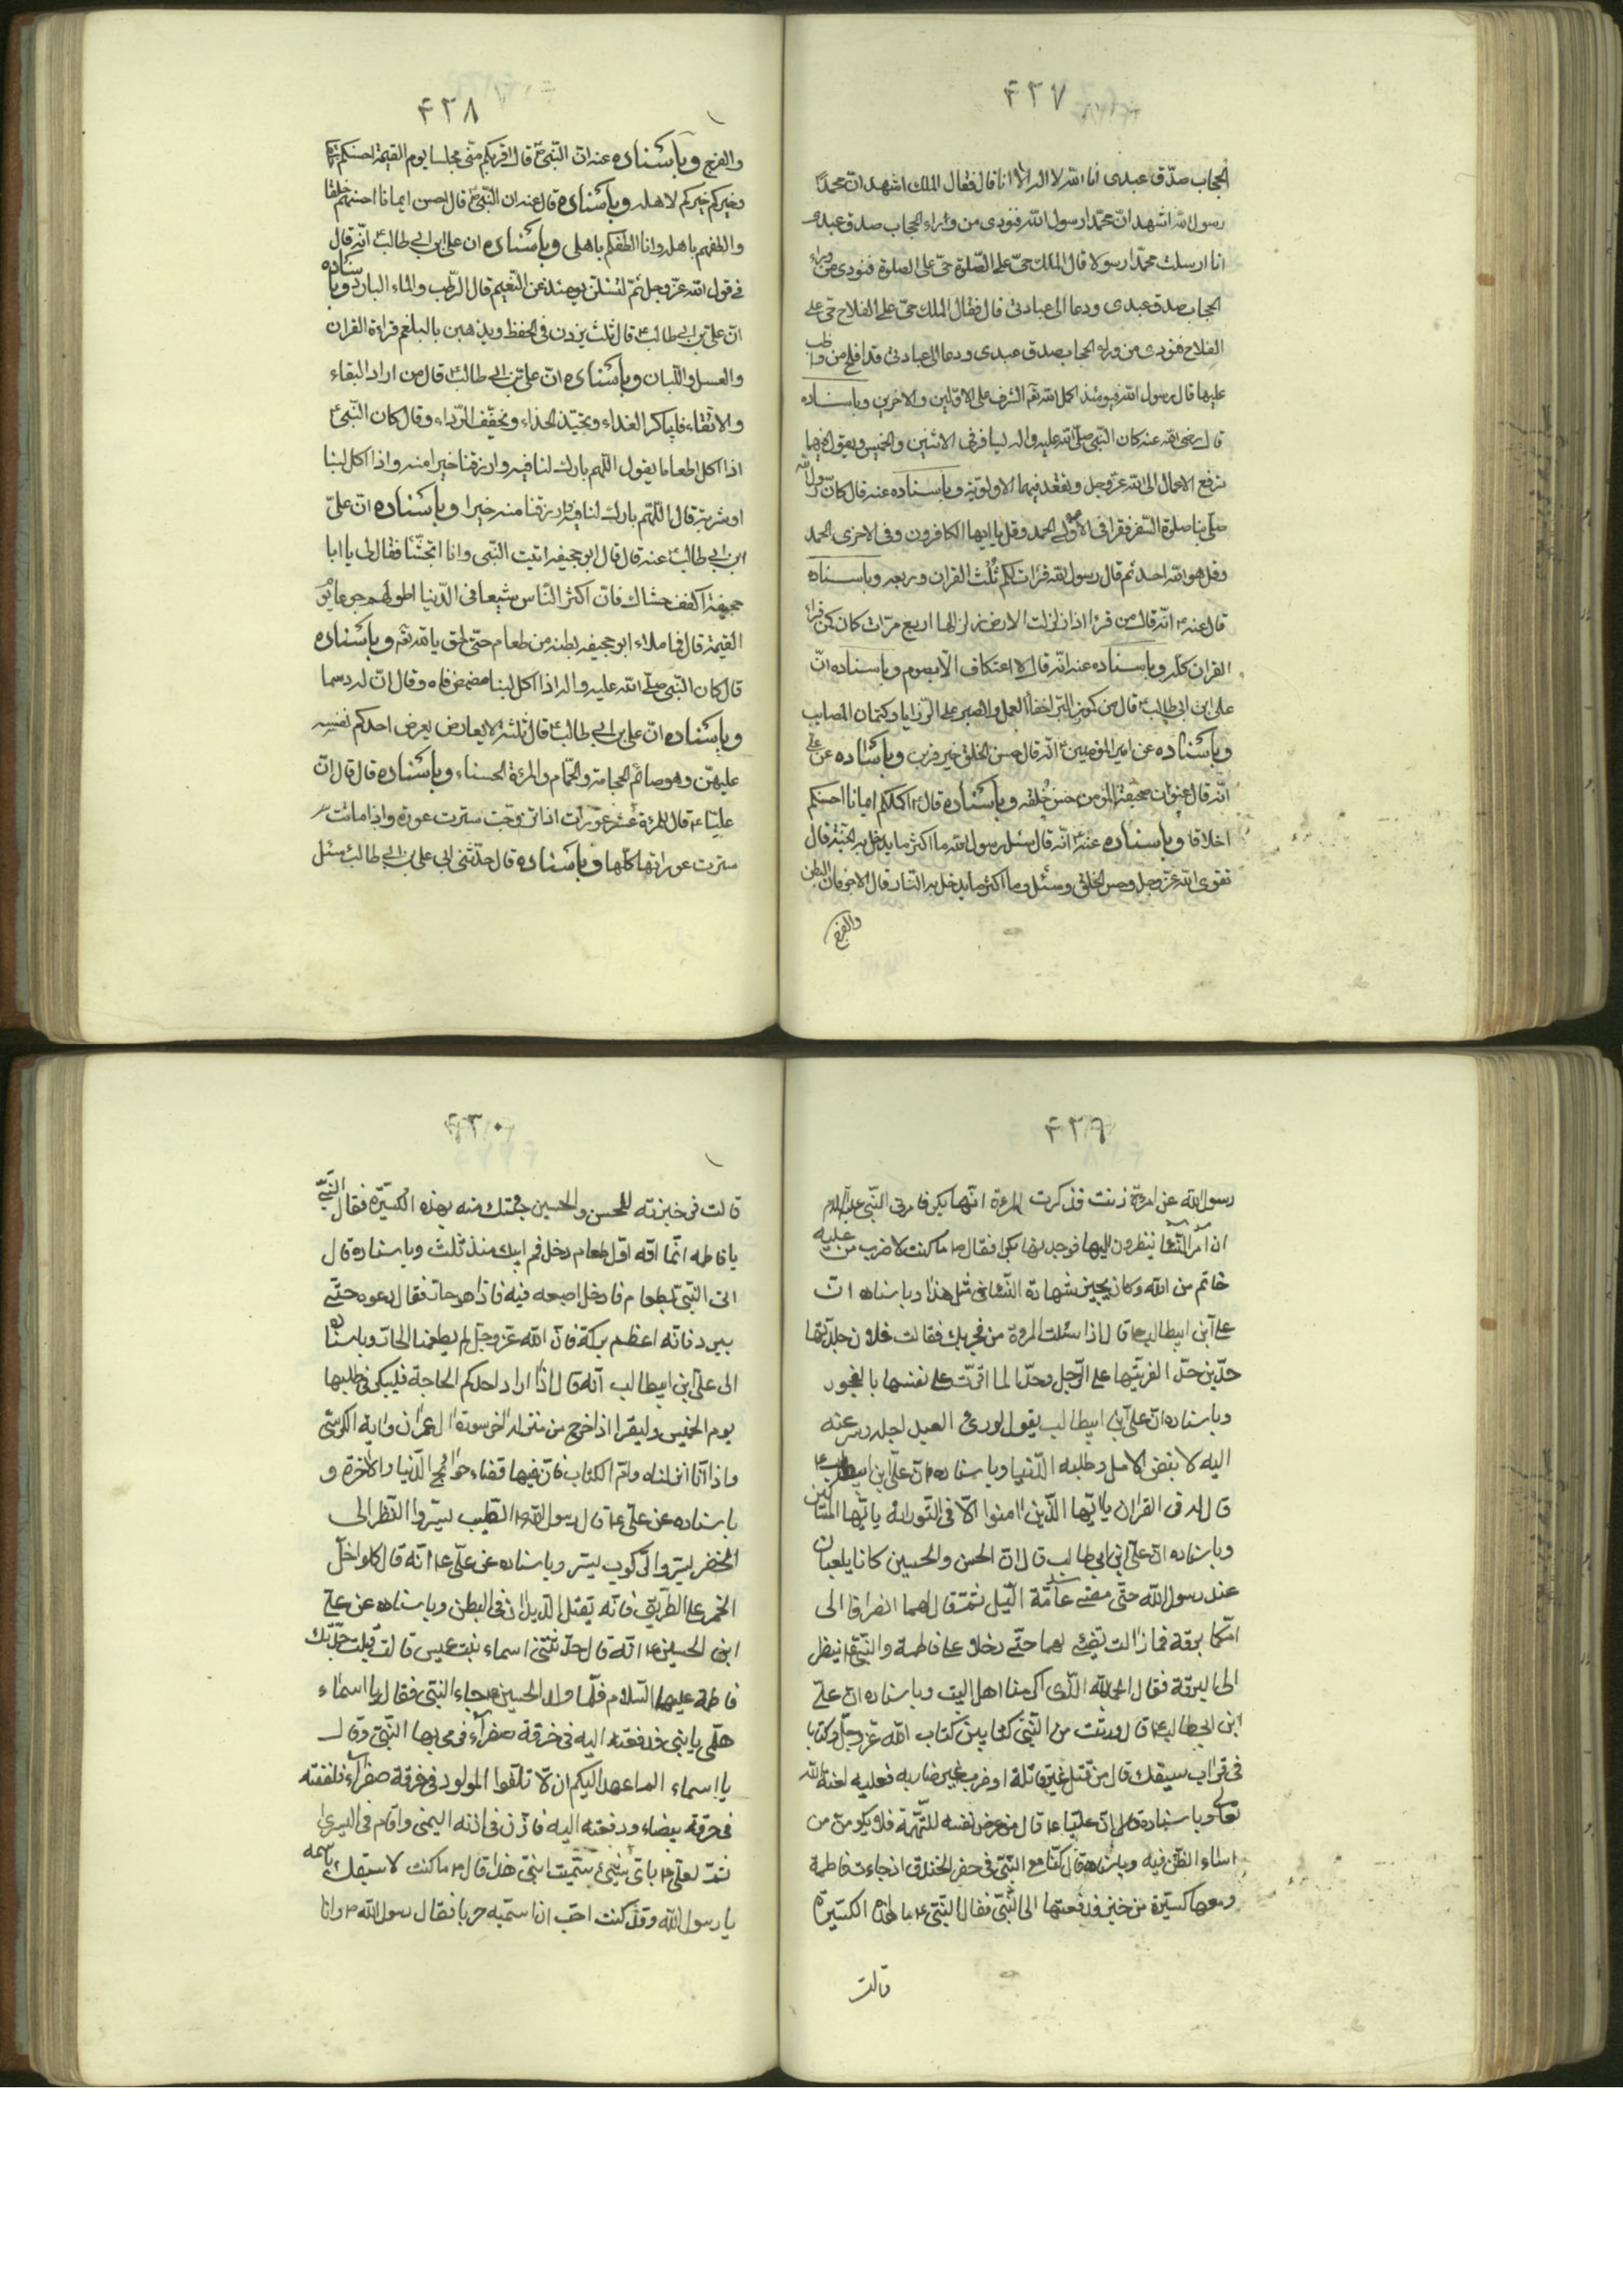 ۴۲۷
الحجاب صدّق عبدی انا الله لا اله الا انا قال فقال الملك اشهد ان محمدًا
رسول الله اشهد ان محمّدا رسول الله فنودی من وراء الحجاب صدق عبدی
انا ارسلت محمّدا رسولا قال الملك حیّ علی الصّلوة حیّ علی الصلوة فنودی من وراء
الحجاب صدق عبدی ودعا الی عبادتی قال فقال الملك حیّ علی الفلاح حیّ علی
الفلاح فنودی من وراء الحجاب صدق عبدی ودعا الی عبادتی قد افلح من واظب
علیها قال رسول الله فیومئذ اکمل الله لی الشرف علی الاوّلین والاخرین وباسناده
قال رضی الله عنه کان النّبی صلی الله علیه واله یسافر فی الاثنین والخمیس ویقول فیهما
ترفع الاعمال الی الله عزّوجل وتعقد فیهما الاولویّة وباسناده عنه قال کان رسول الله
صلّی بنا صلوة السّفر فقرا فی الاولی الحمد وقل یا ایها الکافرون وفی الاخری الحمد
وقل هو الله احد ثم قال رسول الله قرات لکم ثُلُث القران وربعه وباسناده
قال عنه انّه قال من قرء اذا زلزلت الارض زلزالها اربع مرّات کان کمن قرا
القران کلّه وباسناده عنه انّه قال لا اعتکاف الّا بصوم وباسناده انّ
علی ابن ابی طالب قال من کنوز البّر اخفا العمل والصبر علی الرّزایا وکتمان المصایب
وباسناده عن امیر المؤمنین انّه قال حسن الخلق خیر قرین وباسناده عن علی
انّه قال عنوان صحیفة المؤمن حسن خُلقه وباسناده قال اکملکم ایمانا احسنکم
اخلاقا وباسناده عنه انّه قال سئل رسول الله ما اکثر ما یدخل به الجنّة قال
تقوی الله عزّوجل وحسن الخلق وسئل وما اکثر ما یدخل به النّار قال الاجوفان البطن
والفرج
۴۲۸
والفرج وباسناده عنه انّ النّبی قال اقربکم منّی مجلسا یوم القیمة احسنکم
وخیرکم خیرکم لاهله وباسناده قال عنه ان النّبی قال احسن ایمانا احسنهم خلقا
والطفهم باهله وانا الطفکم باهلی وباسناده ان علی ابن ابی طالب انّه قال
فی قول الله عزّوجل ثمّ لتسئلن یومئذ عن النّعیم قال الرّطب والماء البارد وباسناده
انّ علی بن ابی طالب قال ثلث یزدن فی الحفظ ویذهبن بالبلغم قراءة القران
والعسل واللّبان وباسناده انّ علی بن ابی طالب قال من اراد البقاء
والانتقاء فلیباکر الغداء ویجیّد الحذاء ویخفّف الرّداء وقال کان النّبی
اذا اکل طعاما یقول اللّهم بارك لنا فیه وارزقنا خیرا منه واذا اکل لبنا
او شربه قال اللّهم بارك لنا فیه وارزقنا منه خیرا وباسناده انّ علیّ
ابن ابی طالب عنه قال قال ابو جحیفه اتیت النّبی وانا اتجشّأ فقال لی یا ابا
جحیفة اکفف جشاك فان اکثر النّاس شبعا فی الدّنیا اطولهم جوعا یوم
القیمة قال فما ملاء ابو جحیفه بطنه من طعام حتّی لحق بالله وباسناده
قال کان النّبی صلّی الله علیه واله اذا اکل لبنا مضمض فاه وقال انّ له دسما
وباسناده انّ علی بن ابی طالب قال ثلثة لا یعارض یعرض احدکم نفسه
علیهنّ وهو صائم الحجامة والحمّام والمرئة الحسناء وباسناده قال قال انّ
علیّا قال للمرئة عشر عورات اذا تزوّجت سترت عورة واذا ماتت
سترت عوراتها کلّها وباسناده قال حدّثنی ابی علی بن ابی طالب سئل
۴۲۹
رسول الله عن امرئة زنت فذکرت المرءة انّها بکر فامرنی النّبی علیه السلام
ان امر النّساء ینظرون الیها فوجدنها بکرا فقال ما کنت لاضرب من علیه
خاتم من الله وکان یجیز شهادة النّساء فی مثل هذا وباسناده انّ
علی ابن ابیطالب قال اذا سئلت المروة من فجر بك فقالت فلان جلدتها
حدّین حدّا لفریتها علی الرّجل وحدّا لما اقرّت علی نفسها بالفجور
وباسناده انّ علی ابن ابیطالب یقول لو رئ العبد اجله وسرعته
الیه لابغض الامل وطلبه الدّنیا وباسناده انّ علی ابن ابیطالب
قال له فی القران یا ایّها الّذین امنوا الّا فی التّوراة یا ایّها المساکین
وباسناده انّ علی ابن ابی طالب قال انّ الحسن والحسین کانا یلعبان
عند رسول الله حتّی مضی عامّة اللّیل ثمّ قال لهما انصرفا الی
امّکما برقة فما زالت تضیئ لهما حتّی دخلا علی فاطمة والنّبی ینظر
الی البرقة فقال الحمد لله الّذی اکرمنا اهل البیت وباسناده ان علی
ابن ابی طالب قال ورثت من النّبی کتابین کتاب الله عزّوجلّ وکتابا
فی قراب سیفك قال من قتل غیر قاتلة او ضرب غیر ضاربه فعلیه لعنة الله
تعالی وباسناده قال انّ علیّا قال من عرض نفسه للتّهمة فلا یلومنّ من
اساء الظّن فیه وباسناده قال کنّا مع النّبی فی حفر الخندق اذ جاءت فاطمة
ومعها کسیّرة من خبز فدفعتها الی النّبی فقال النّبی ما هذه الکسیّرة
قالت
۴۳۰
قالت فی خبزته للحسن والحسین جئتك منه بهذه الکسیّرة فقال النّبی
یا فاطمه انّما انّه اوّل طعام دخل فم ابیك منذ ثلث وباسناده قال
اتی النّبی بطعام فادخل اصبعه فیه فاذا هو حار فقال دعوه حتّی
یبرد فانّه اعظم برکة فانّ الله عزّوجلّ لم یطعمنا الحارّ وباسناده
الی علی ابن ابیطالب انّه قال اذا اراد احدکم الحاجة فلیبکر فی طلبها
یوم الخمیس ولیقرا اذا خرج من منزله اخر سورة ال عمران وایة الکرسی
واذا انّا انزلناه وامّ الکتاب فانّ فیها قضاء حوائج الدّنیا والاخرة و
باسناده عن علی قال رسول الله الطّیب یسّر والنّظر الی
الخضر یسّر والرّکوب یسّر وباسناده عن علی انّه قال کلوا خلّ
الخمر علی الطّریق فانّه یقتل الدّیدان فی البطن وباسناده عن علی
ابن الحسین انّه قال حدّثتنی اسماء بنت عمیس قالت قبلت جدّتك
فاطمة علیها السّلام فلمّا ولد الحسین جاء النّبی فقال یا اسماء
هلمّی یا بنی فدفعته الیه فی خرقة صفراء فرمی بها النّبی وقال
یا اسماء الم اعهد الیکم ان لا تلفّوا المولود فی خرقة صفراء فلففته
فی خرقة بیضاء ودفعته الیه فاذّن فی اذنه الیمنی واقام فی الیسری
ثمّ لعلی بایّ شیئ سمّیت ابنی هذا قال ما کنت لاسبقك باسمه
یا رسول الله وقد کنت احبّ ان اسمّیه حربا فقال رسول الله وانا